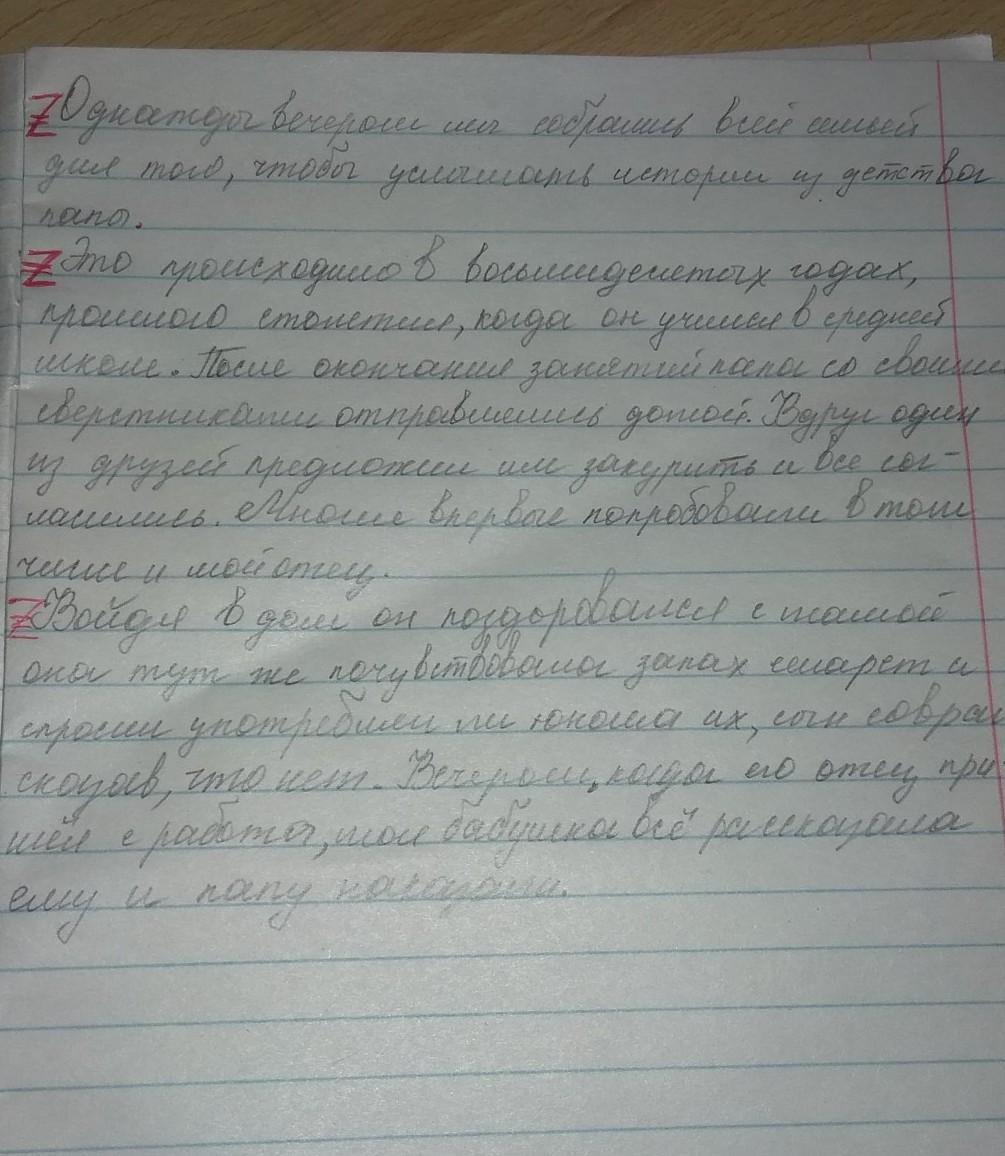 Однажды вечером мы собрались всей семьёй
для того, чтобы услышать истории из детства
папы.
Это происходило в восьмидесятых годах,
прошлого столетия, когда он учился в средней
школе. После окончания занятий папа со своими
сверстниками отправились домой. Вдруг один
из друзей предложил им закурить и все сог-
ласились. Многие впервые попробовали в том
числе и мой отец.
Войдя в дом он поздоровался с мамой
она тут же почувствовала запах сигарет и
спросил употреблял ли юноша их, сын соврал
сказав, что нет. Вечером, когда его отец при-
шёл с работы, моя бабушка всё рассказала
ему и папу наказали.